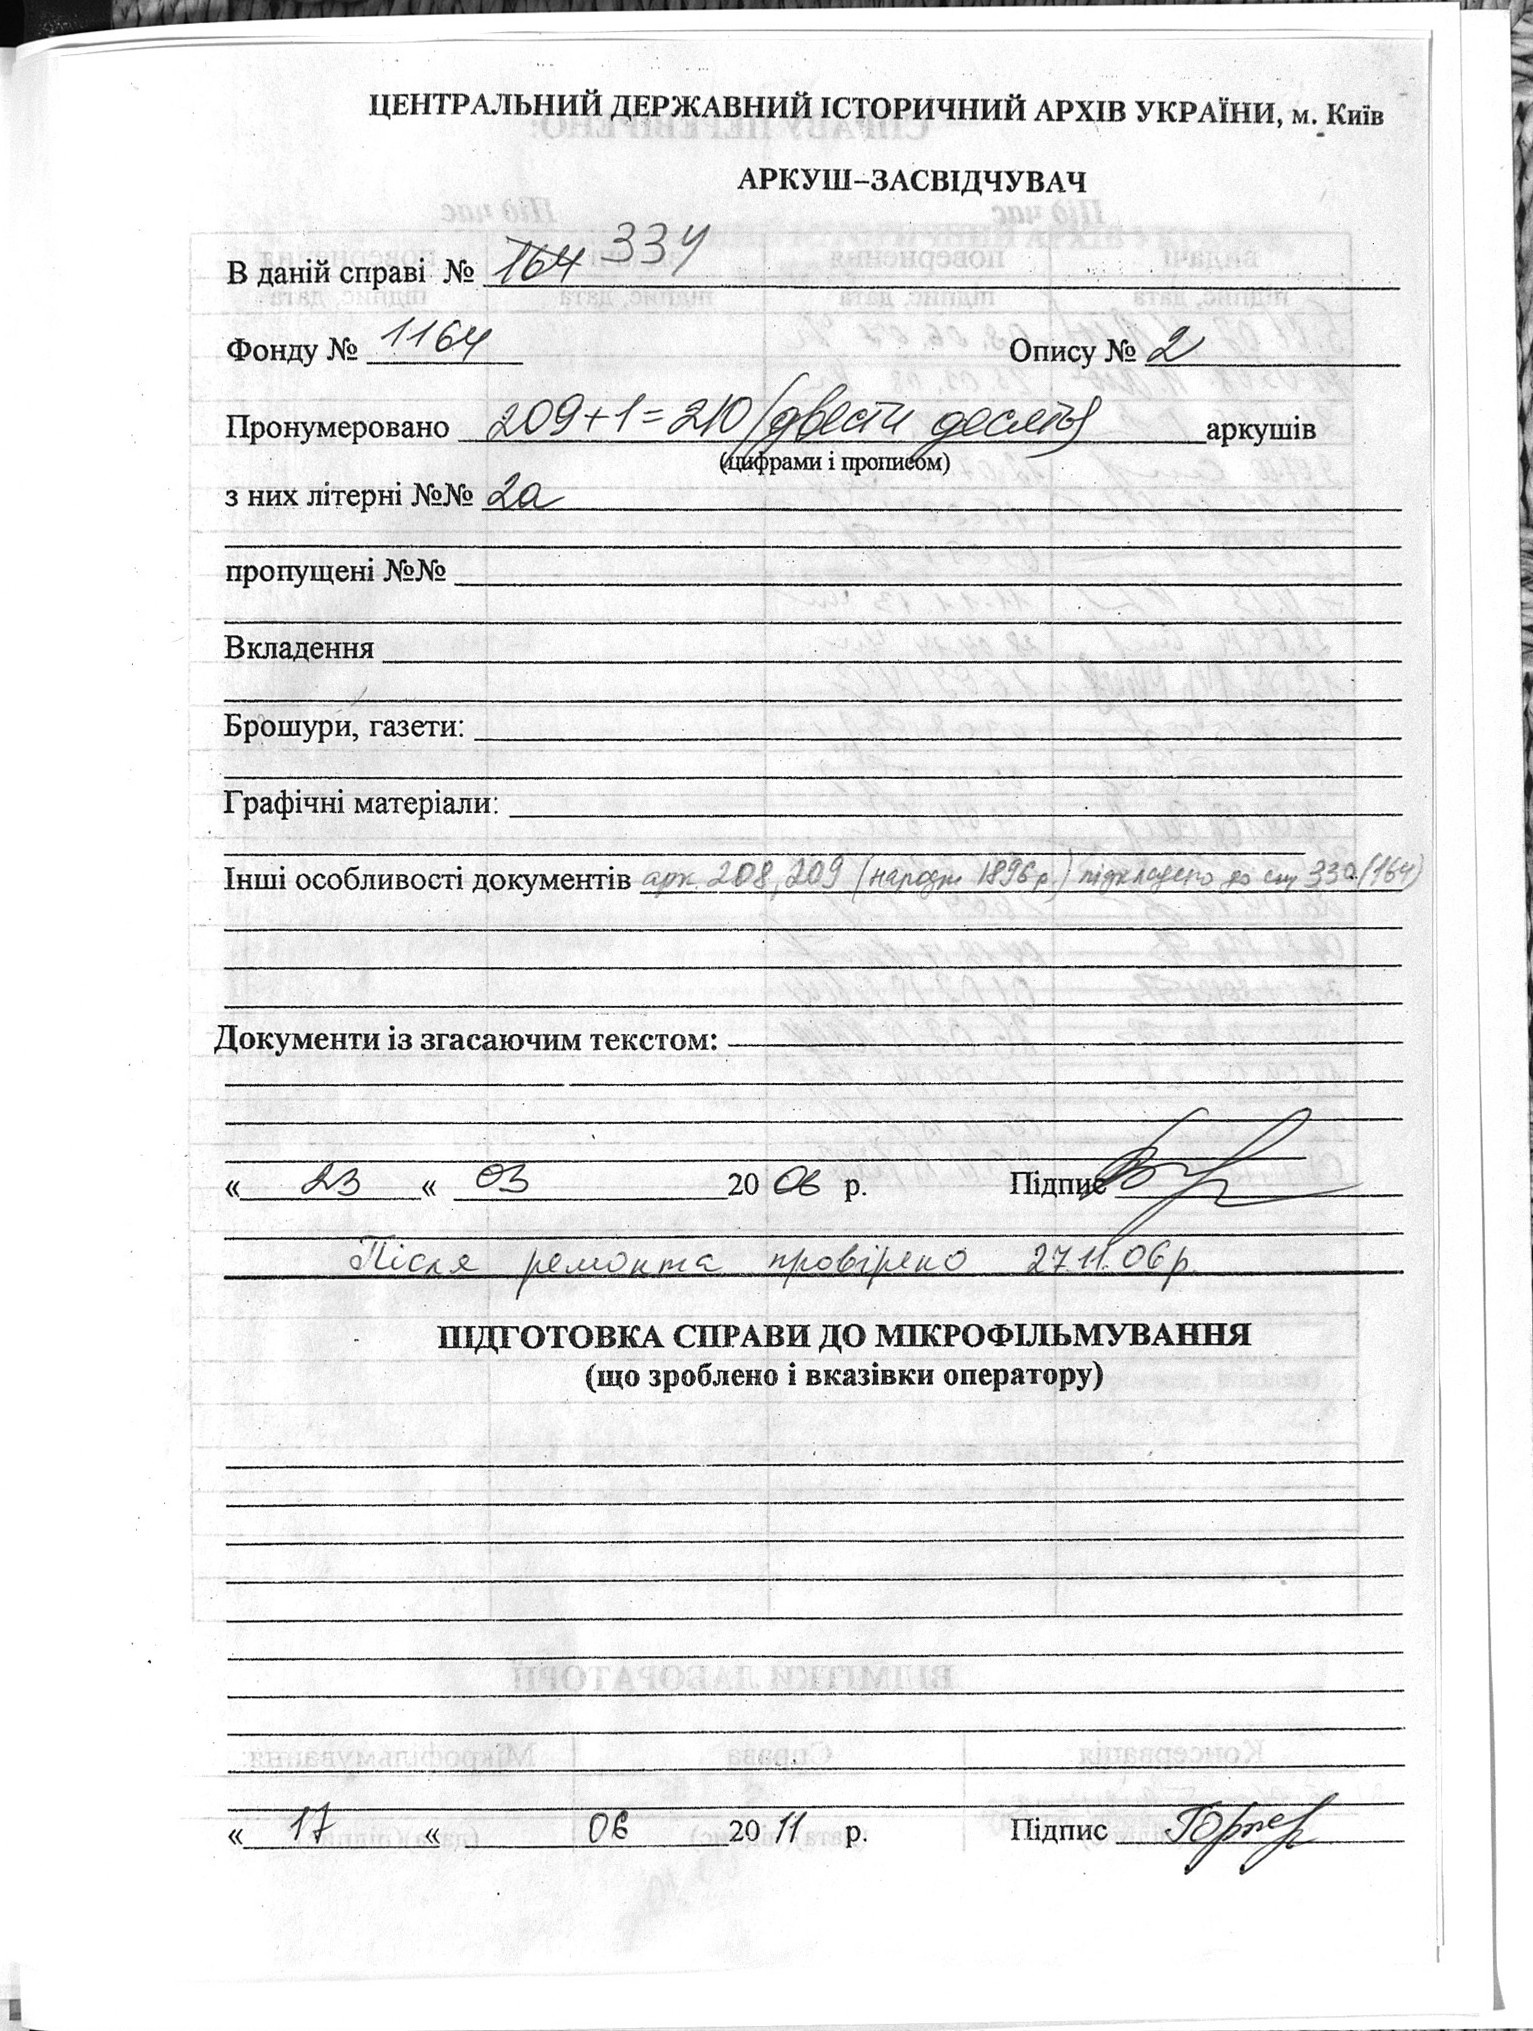 ЦЕНТРАЛЬНИЙ ДЕРЖАВНИЙ ІСТОРИЧНИЙ АРХІВ УКРАЇНИ, м. Київ
АРКУШ–ЗАСВІДЧУВАЧ
В даній справі № 164 334
Фонду № 1164 Опису № 2
Пронумеровано 209+1=210 (двести десять) аркушів
(цифрами і прописом)
з них літерні №№ 2а
пропущені №№
Вкладення
Брошури, газети:
Графічні матеріали:
Інші особливості документів арк. 208, 209 (народж 1896 р.) підкладено до 330 (164)
Документи із згасаючим текстом:
« 23 « 03 20 06 р. Підпис
Після ремонта провірено 27.11.06 р.
ПІДГОТОВКА СПРАВИ ДО МІКРОФІЛЬМУВАННЯ
(що зроблено і вказівки оператору)
« 17 « 06 20 11 р. Підпис